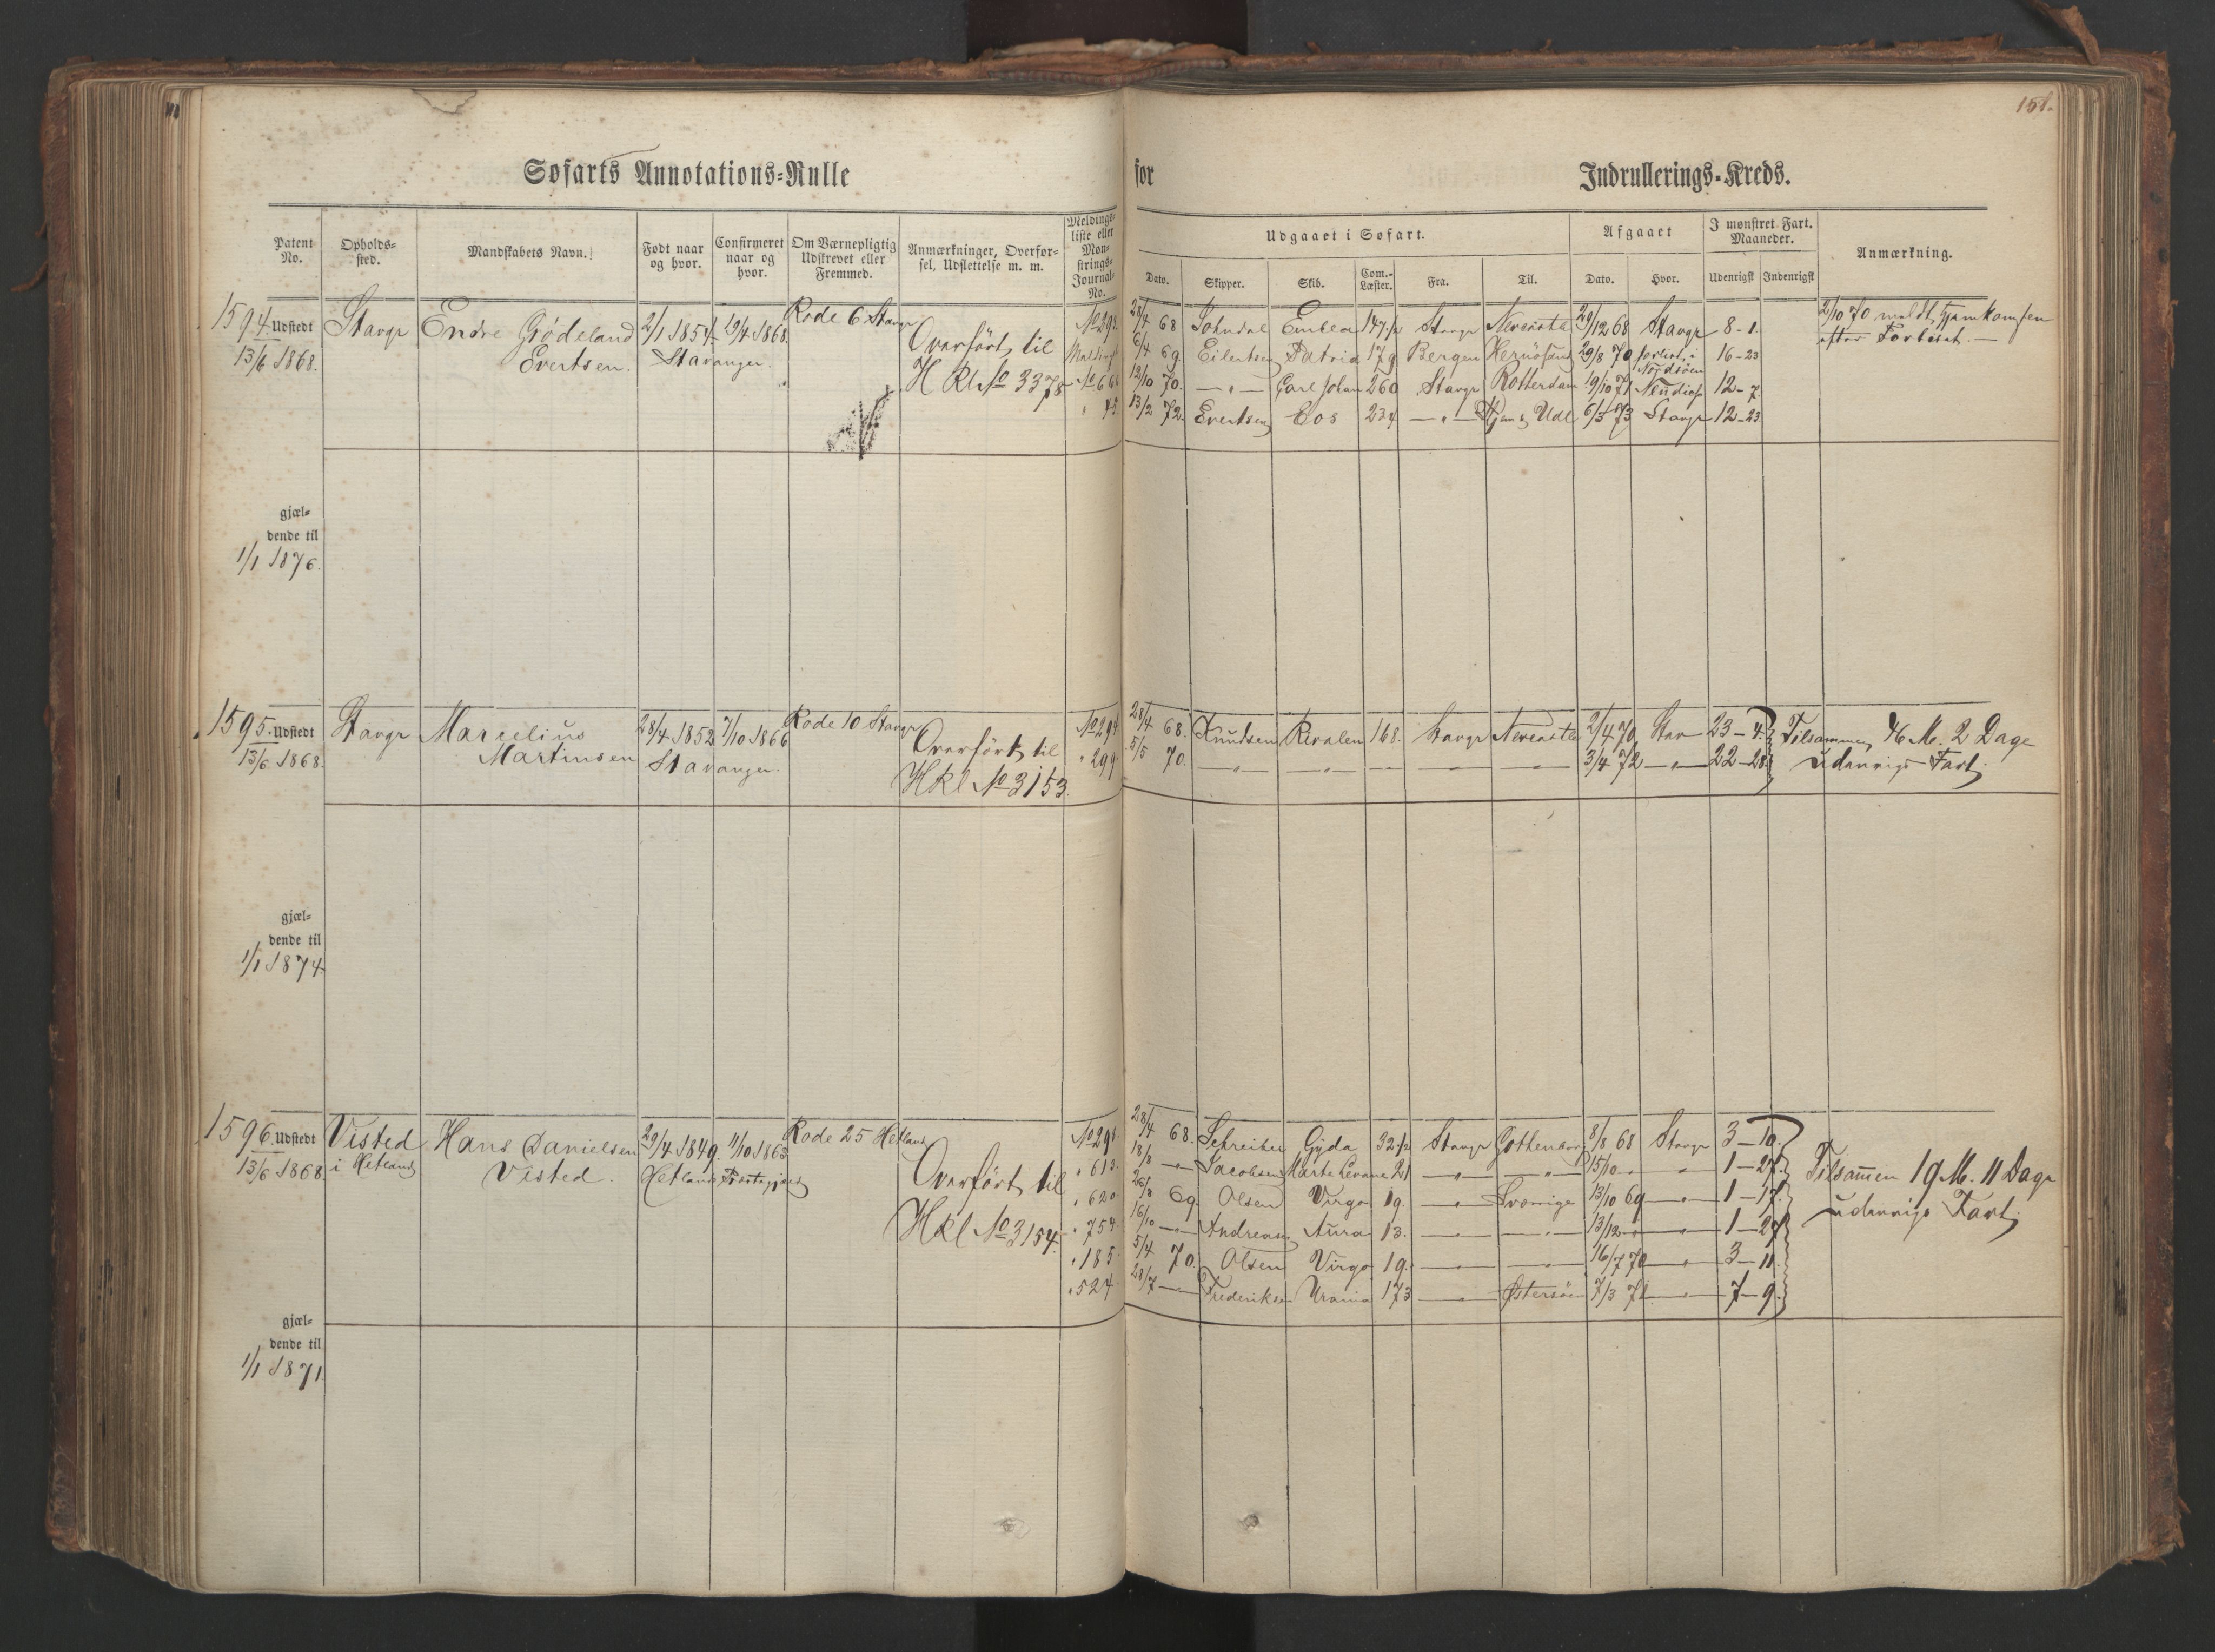 151.
Søfarts Annotations-Rulle for Indrullerings-Kreds.
Patent No. Opholds-sted. Mandskabets Navn. Født naar og hvor. Confirmeret naar og hvor. Om Værnepligtig Udskrevet eller Fremmed. Anmærkninger, Overførsel, Udslettelse m. m. Meldingsliste eller Mønstrings-Journal-No.
Udgaaet i Søfart. Afgaaet I mønstret Fart. Maaneder. Anmærkning.
Dato. Skipper. Skib. Com.-Læster. Fra. Til. Dato. Hvor. Udenrigsk Indenrigsk
1594. Udstedt Stavgr Endre Gjödeland 2/1 1854 19/4 1868. Rode 6 Stavgr
13/6 1868. Evertsen. Stavanger. Overført til
H Kl No 3378
No 292 28/4 68 Emblem 147 1/2 Stavgr Newcastle 29/12 68 Stavgr 8-1. 2/10 70 meldt Hjemkomsen
6/4 69. Eilertsen Patria 179 Bergen Hernösand 29/8 70 forlist i 16-23 efter Forliset.
Nordsöen
No 666 12/10 70. — " — Carl Johan 260 Stavgr Rotterdam 19/10 71 12-7.
" 45 13/2 72. Evertsen Eos 234 — " — Udl 6/3 73 Stavgr 12-23
gjæl-
dende til
1/1 1876.
1595. Udstedt Stavgr Marcelius 28/4 1852 7/10 1866 Rode 10 Stavgr
13/6 1868. Martinsen Stavanger. Overført til
Hkl No 3153.
No 294 28/4 68. Knudsen Rivalen 168. Stavgr Newcastle 2/4 70 Stav 23-4. Tilsammen 46 M. 2 Dage
" 299 5/5 70. — " — — " — — — " — — " — 3/4 72 — " — 22-28. udenrigs Fart.
gjæl-
dende til
1/1 1874
1596. Udstedt Visted Hans Danielsen 29/4 1849. 11/10 1863 Rode 25 Hetland
13/6 1868. i Hetland Visted. Hetlands Præstegjæld Overført til
Hkl No 3154.
No 298 28/4 68. Schreiber Gyda 32 1/2 Stavgr Gothenborg 8/8 68 Stavgr 3-10.
" 613. 18/8 — " — Jacobsen 21 — " — — " — 15/10 — " 1-27. Tilsammen 19 M. 11 Dage
" 620 26/8 69. Olsen Virgo 19. — " — Sverrige 13/10 69 — " — 1-17. udenrigs Fart.
" 754. 16/10 — " — Andreasen Aura 13. — " — — " — 13/12 — " — 1-27
" 185. 5/4 70. Olsen Virgo 19. — " — — " — 16/7 70 — " — 3-11.
" 524 28/7 — " — Frederiksen Urania 173 — " — Østersöen 7/3 71 — " — 7-9.
gjæl-
dende til
1/1 1871.